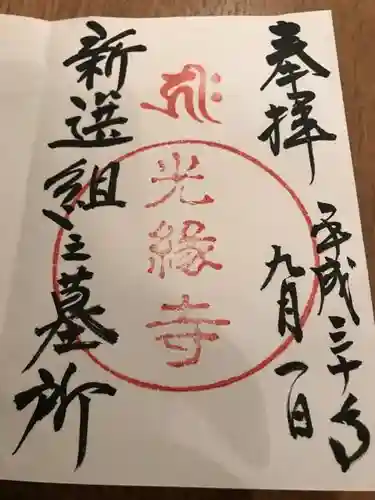 奉拝
平成三十年
九月一日
光縁寺
新選組之墓所